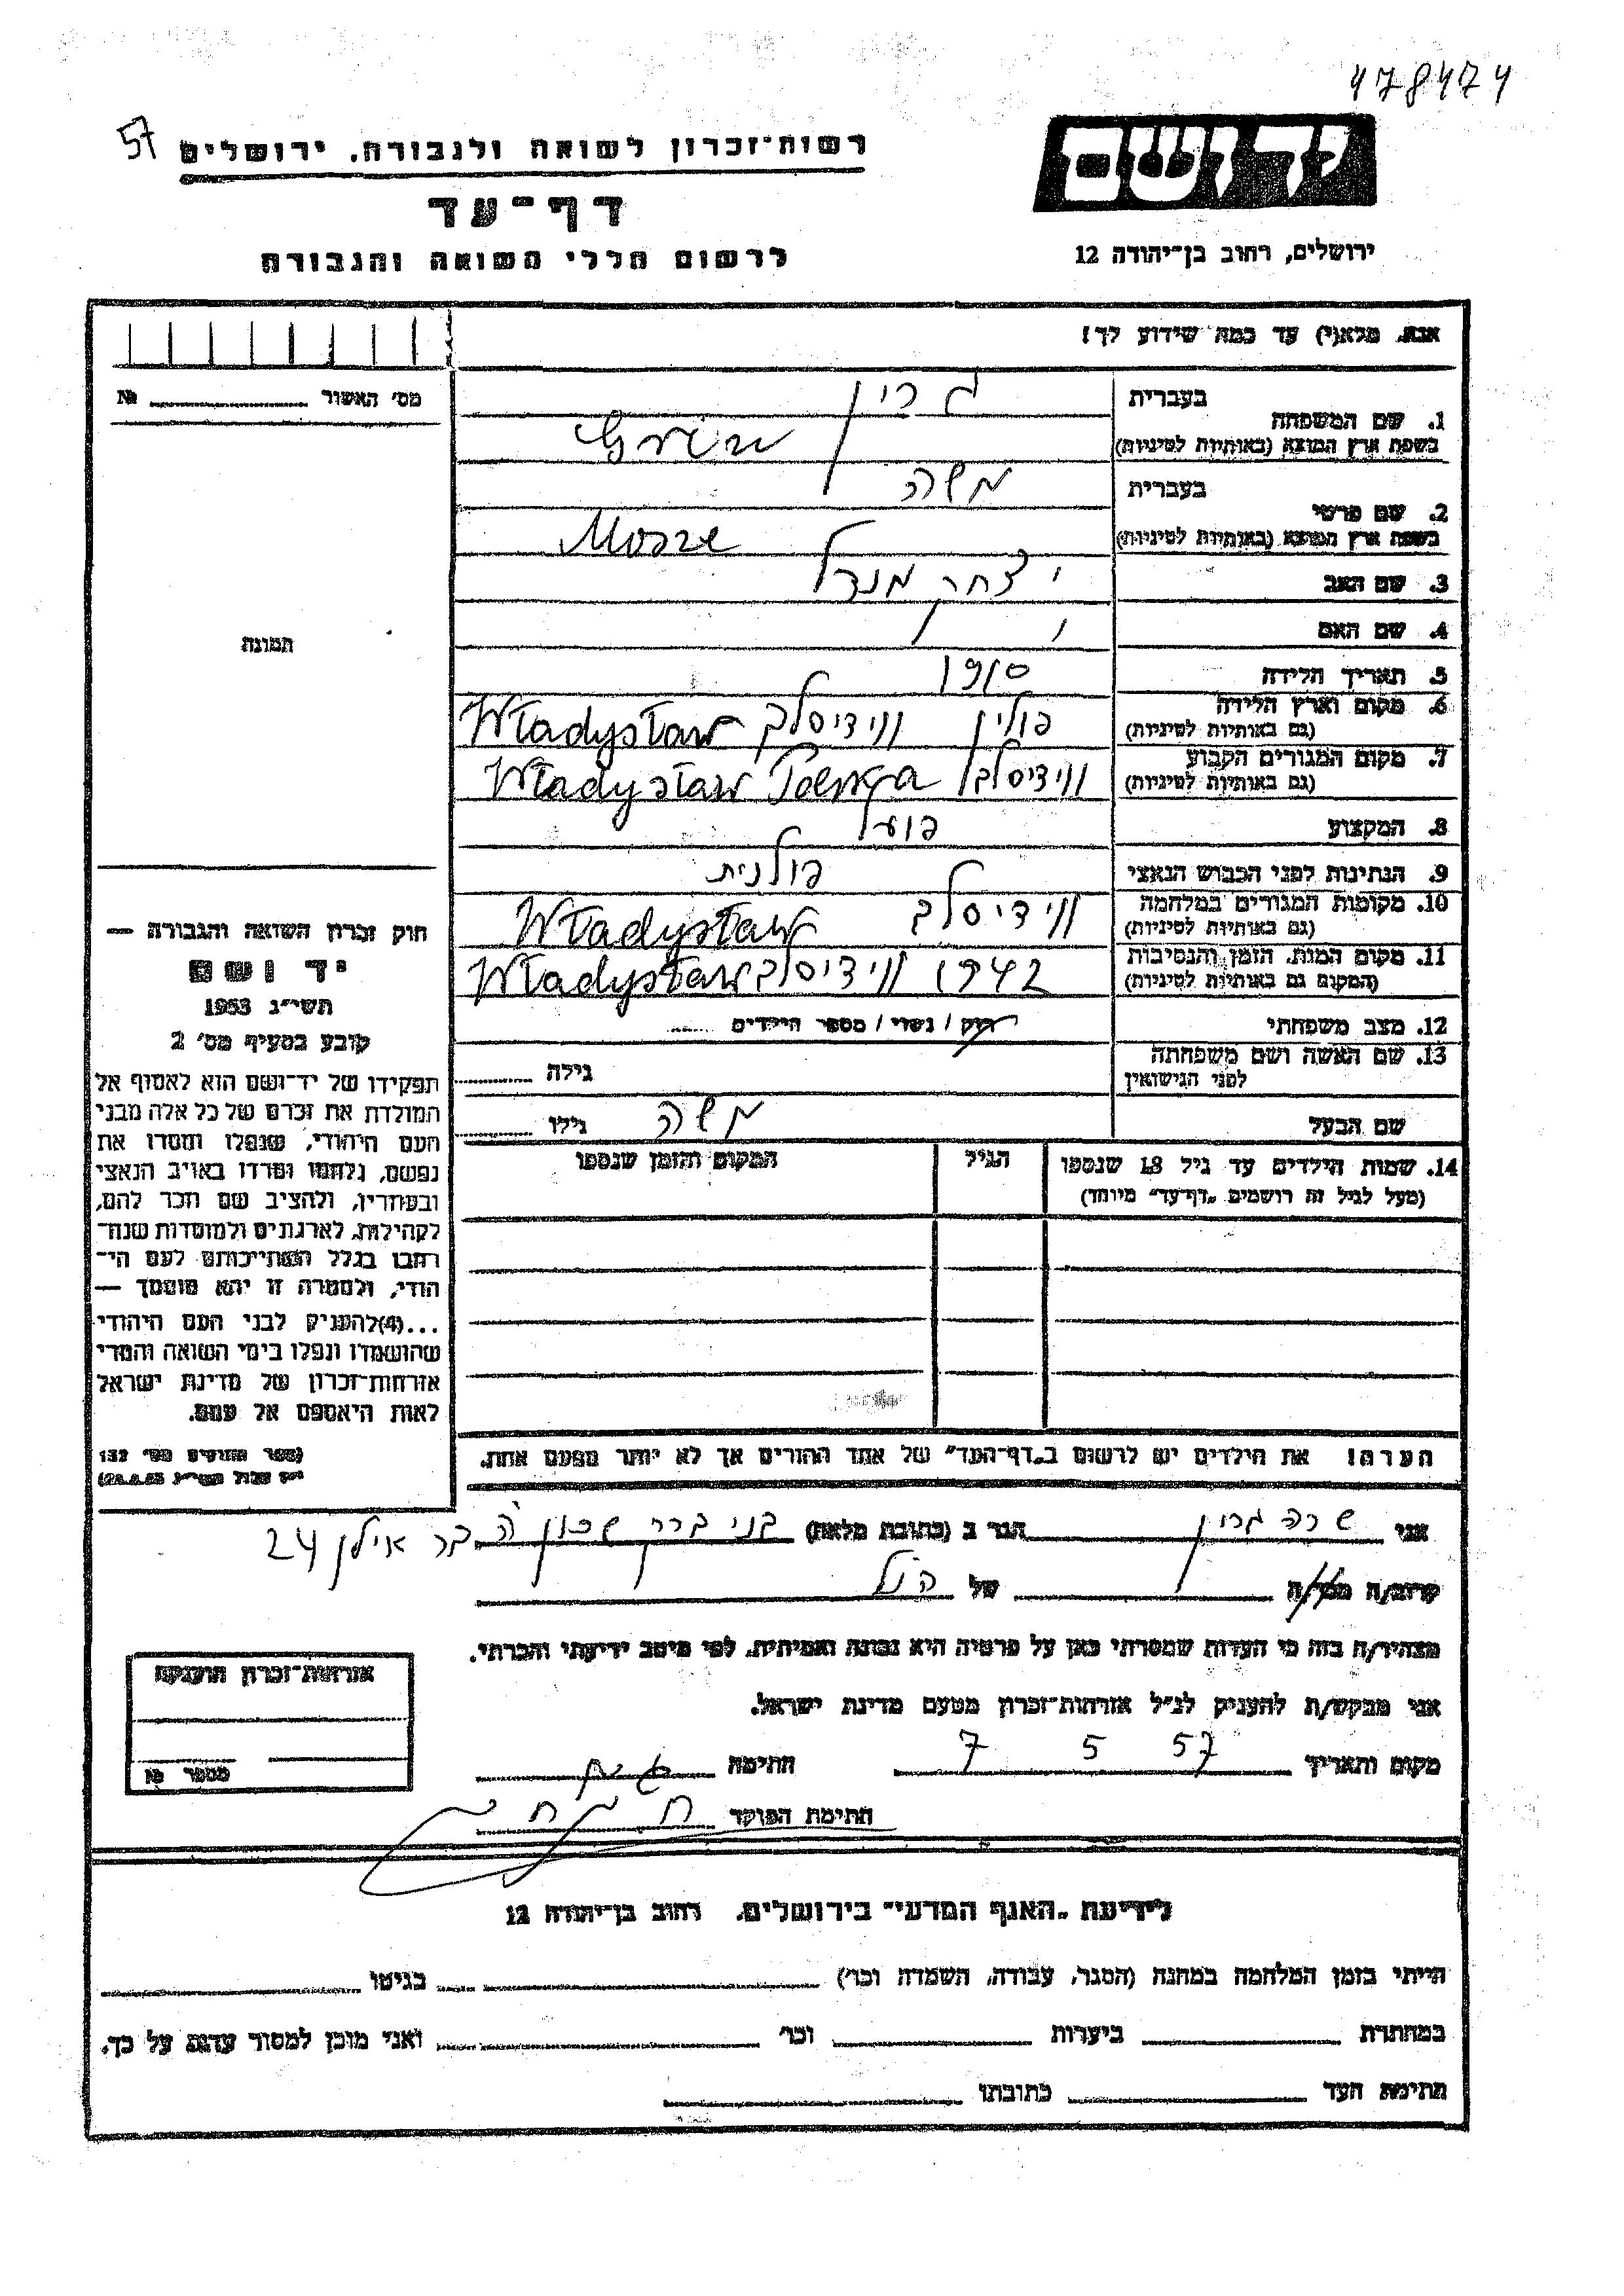 478474
57
רשות־זכרון לשואה ולגבורה, ירושלים
יד ושם
דף־עד
לרשום חללי השואה והגבורה
ירושלים, רחוב בן־יהודה 12
אנא, מלא(י) עד כמה שידוע לך!
מס' האשור № 
1. שם המשפחה
בעברית גרין
בשפת ארץ המוצא (באותיות לטיניות) Grün
2. שם פרטי
בעברית משה
בשפת ארץ המוצא (באותיות לטיניות) Mosze
3. שם האב יצחק מנדל
4. שם האם
5. תאריך הלידה 1910
6. מקום וארץ הלידה פולין וודיסלב Władysław
(גם באותיות לטיניות)
7. מקום המגורים הקבוע וודיסלב Władysław Polska
(גם באותיות לטיניות)
8. המקצוע פועל
9. הנתינות לפני הכבוש הנאצי פולנית
10. מקומות המגורים במלחמה וידיסלב Władysław
(גם באותיות לטיניות)
11. מקום המות, הזמן והנסיבות 1942 וידיסלב Władysław
(המקום גם באותיות לטיניות)
12. מצב משפחתי רוק / נשוי / מספר הילדים
13. שם האשה ושם משפחתה
לפני הנישואין
גילה
שם הבעל משה גילו
14. שמות הילדים עד גיל 18 שנספו הגיל המקום והזמן שנספו
(מעל לגיל זה רושמים "דף־עד" מיוחד)
הערה! את הילדים יש לרשום ב"דף־העד" של אחד ההורים אך לא יותר מפעם אחת.
תמונה
חוק זכרון השואה והגבורה —
יד ושם
תשי"ג 1953
קובע בסעיף מס' 2
תפקידו של יד־ושם הוא לאסוף אל
המולדת את זכרם של כל אלה מבני
העם היהודי, שנפלו ומסרו את
נפשם, נלחמו ומרדו באויב הנאצי
ובעוזריו, ולהציב שם וזכר להם,
לקהילות, לארגונים ולמוסדות שנח־
רבו בגלל השתייכותם לעם הי־
הודי, ולמטרה זו יהא מוסמך —
...(4)להעניק לבני העם היהודי
שהושמדו ונפלו בימי השואה והמרי
אזרחות־זכרון של מדינת ישראל
לאות היאספם אל עמם.
(ספר החוקים מס' 132
אני שרה גרין הגר ב (כתובת מלאה) בני ברק שכון ה בר אילן 24
קרוב/ה מכר/ה של הנ"ל
מצהיר/ה בזה כי העדות שמסרתי כאן על פרטיה היא נכונה ואמיתית, לפי מיטב ידיעתי והכרתי.
אני מבקש/ת להעניק לנ"ל אזרחות־זכרון מטעם מדינת ישראל.
מקום ותאריך 7 5 57 חתימה
חתימת הפוקד
אזרחות־זכרון הוענקה
מספר №
לידיעת "האגף המדעי" בירושלים, רחוב בן־יהודה 12
הייתי בזמן המלחמה במחנה (הסגר, עבודה, השמדה וכו') בגיטו
במחתרת ביערות וכו' ואני מוכן למסור עדות על כך.
חתימת העד כתובתו